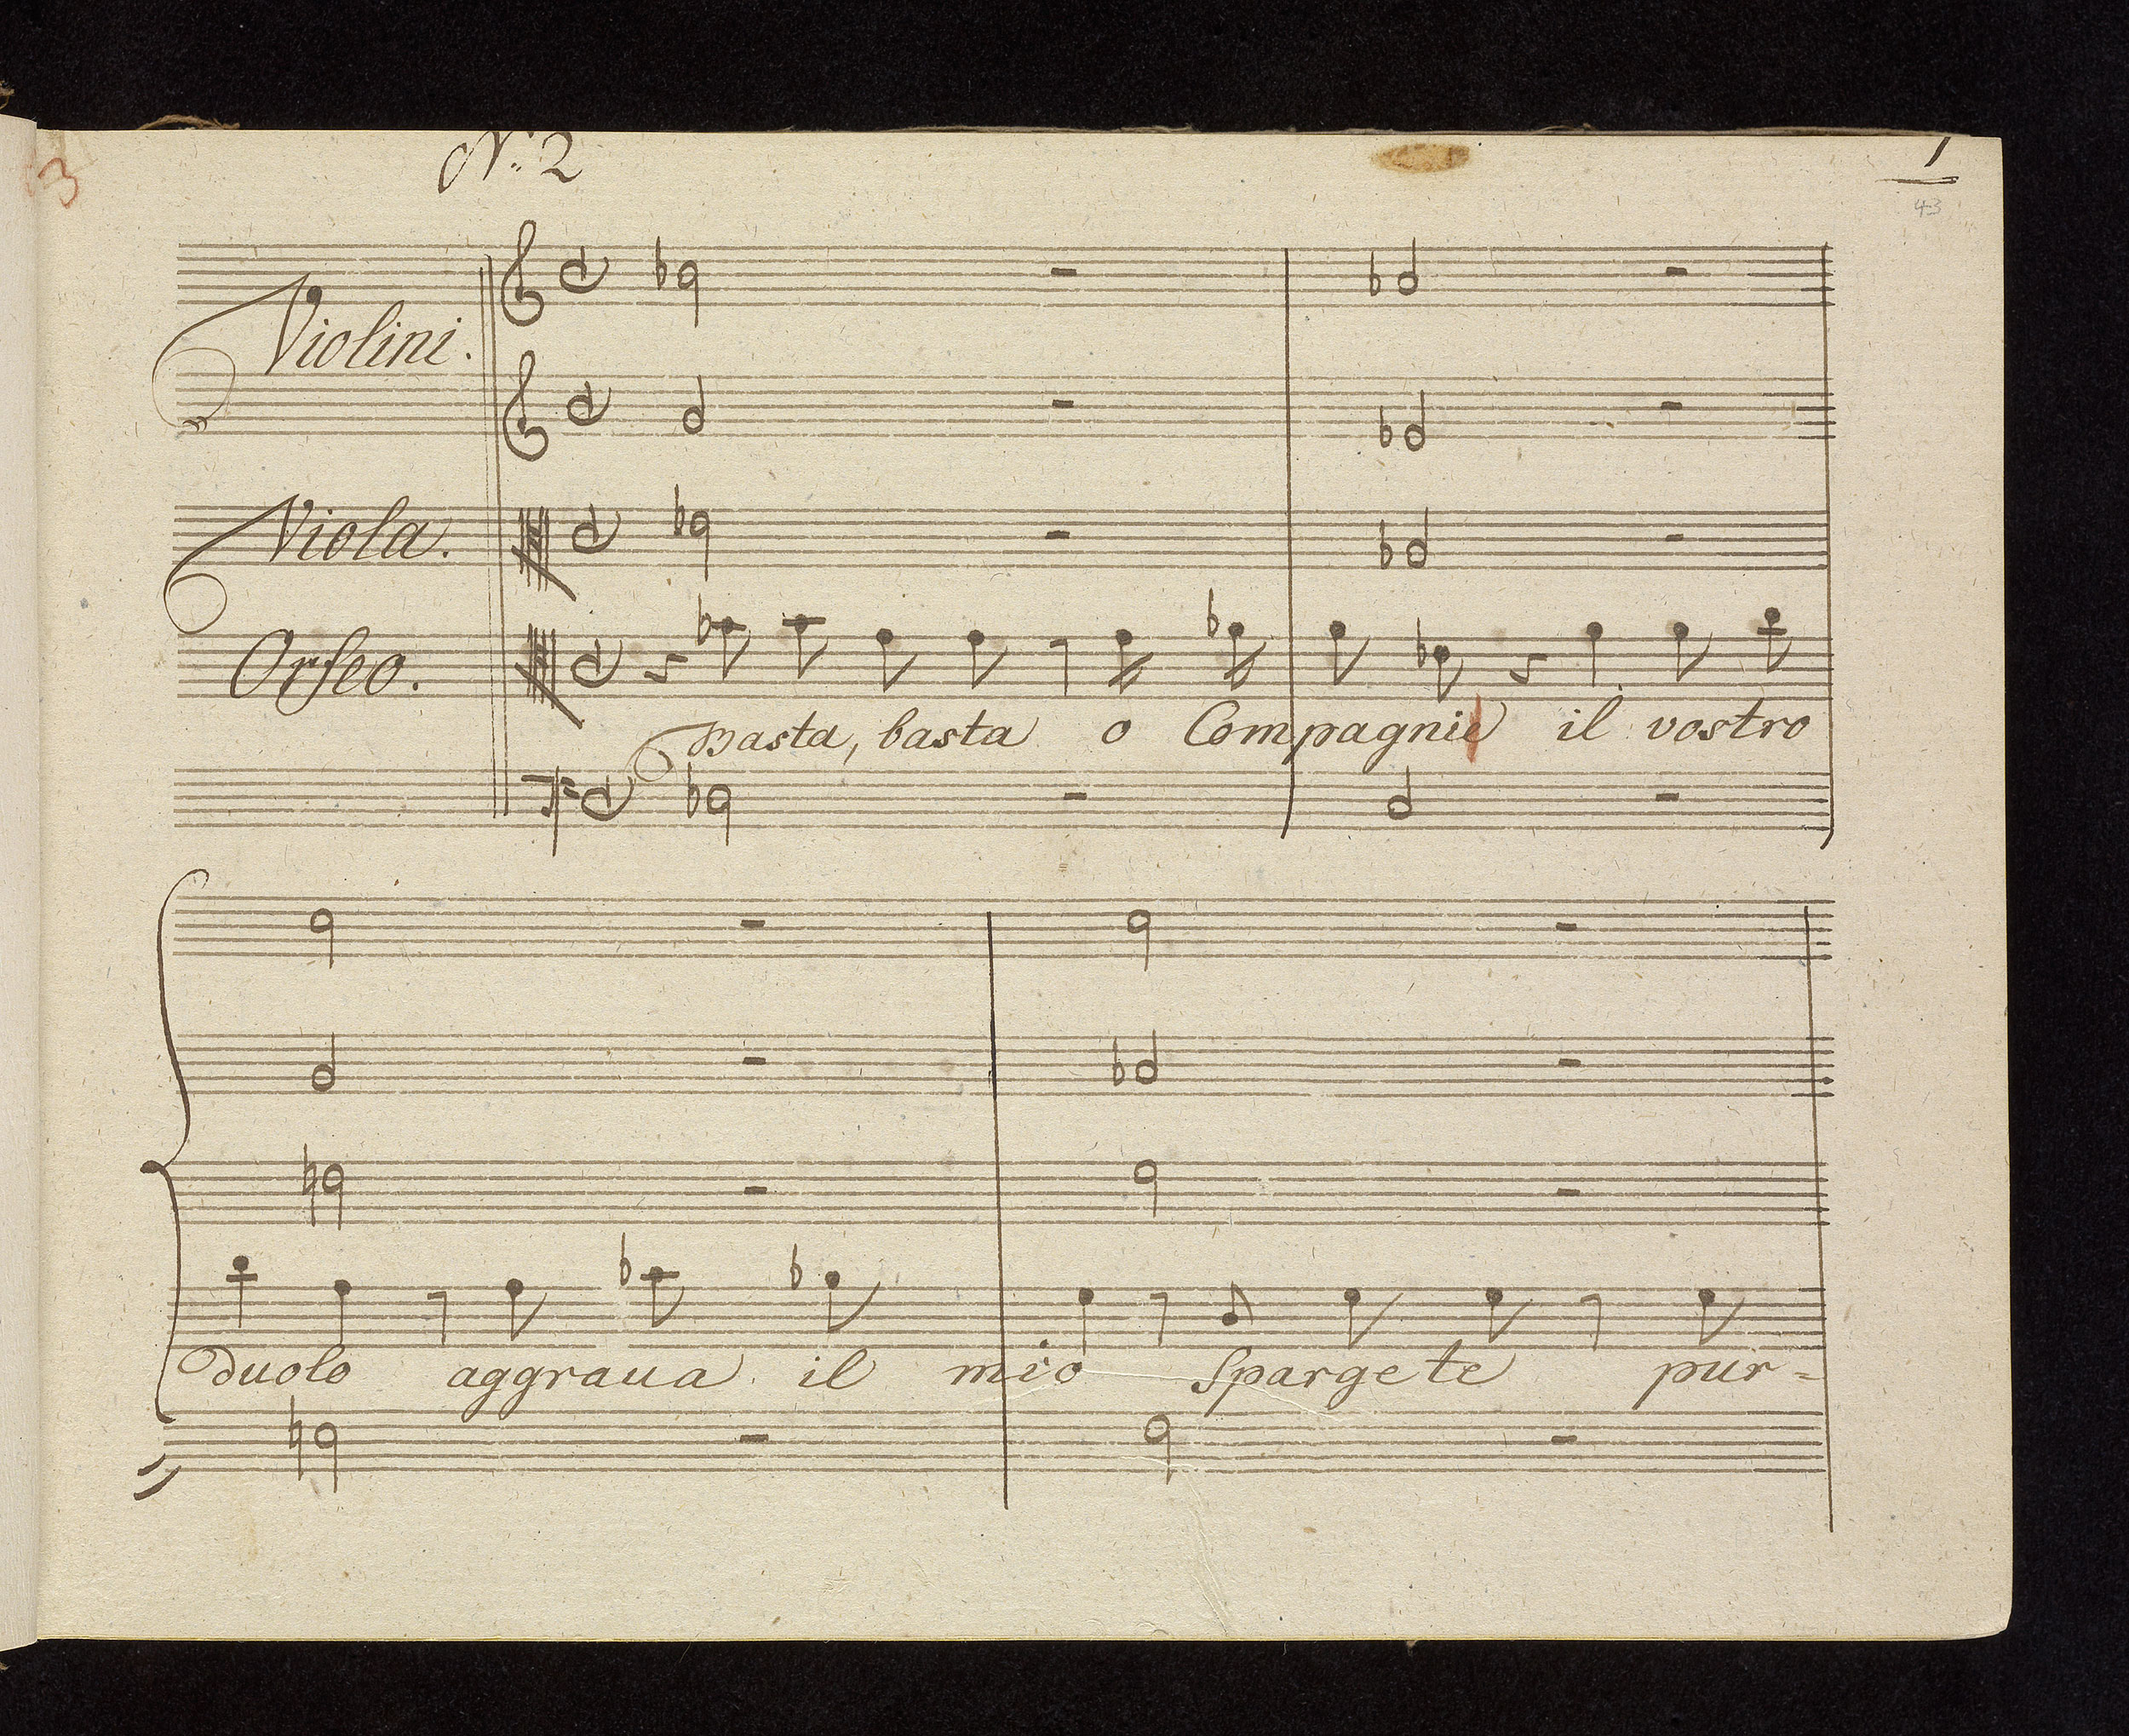 3
N.º 2
1
43
Violini.
Viola.
Orfeo.
Basta, basta o Compagnie il vostro
duolo aggraua il mio Spargete pur=